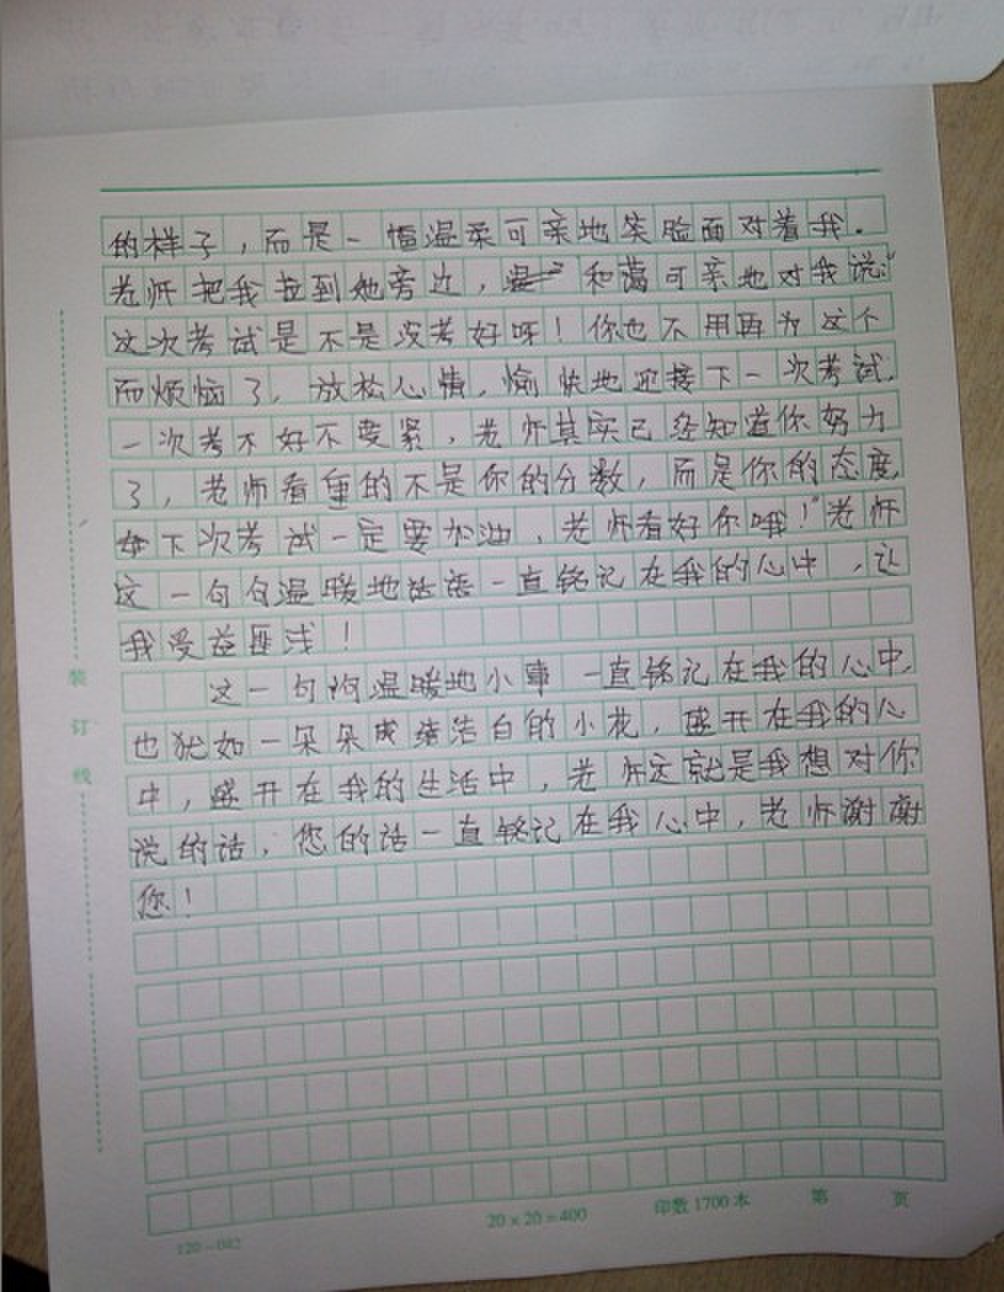 的样子，而是一幅温柔可亲地笑脸面对着我．
老师把我拉到她旁边，和蔼可亲地对我说：“
这次考试是不是没考好呀！你也不用再为这个
而烦恼了，放松心情，愉快地迎接下一次考试，
一次考不好不要紧，老师其实已经知道你努力
了，老师看重的不是你的分数，而是你的态度，
下次考试一定要加油，老师看好你哦！”老师
这一句句温暖地话语一直铭记在我的心中，让
我受益匪浅！
这一句句温暖地小事一直铭记在我的心中，
也犹如一朵朵成洁白的小花，盛开在我的心
中，盛开在我的生活中，老师这就是我想对你
说的话，您的话一直铭记在我心中，老师谢谢
您！
装
订
线
120－042
20×20＝400
印数1700本
第
页